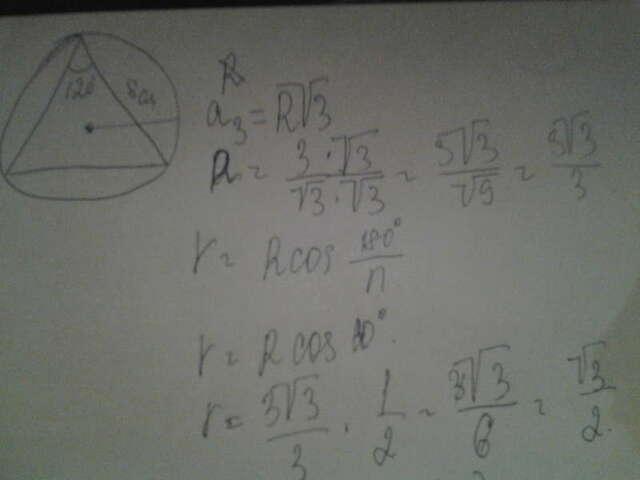 120
R
a₃ = R√3
R = 3·√3 / √3·√3 = 3√3 / √9 = 3√3 / 3
r = R cos 180° / n
r = R cos 60°.
r = 3√3 / 3 · 1 / 2 = 3√3 / 6 = √3 / 2.